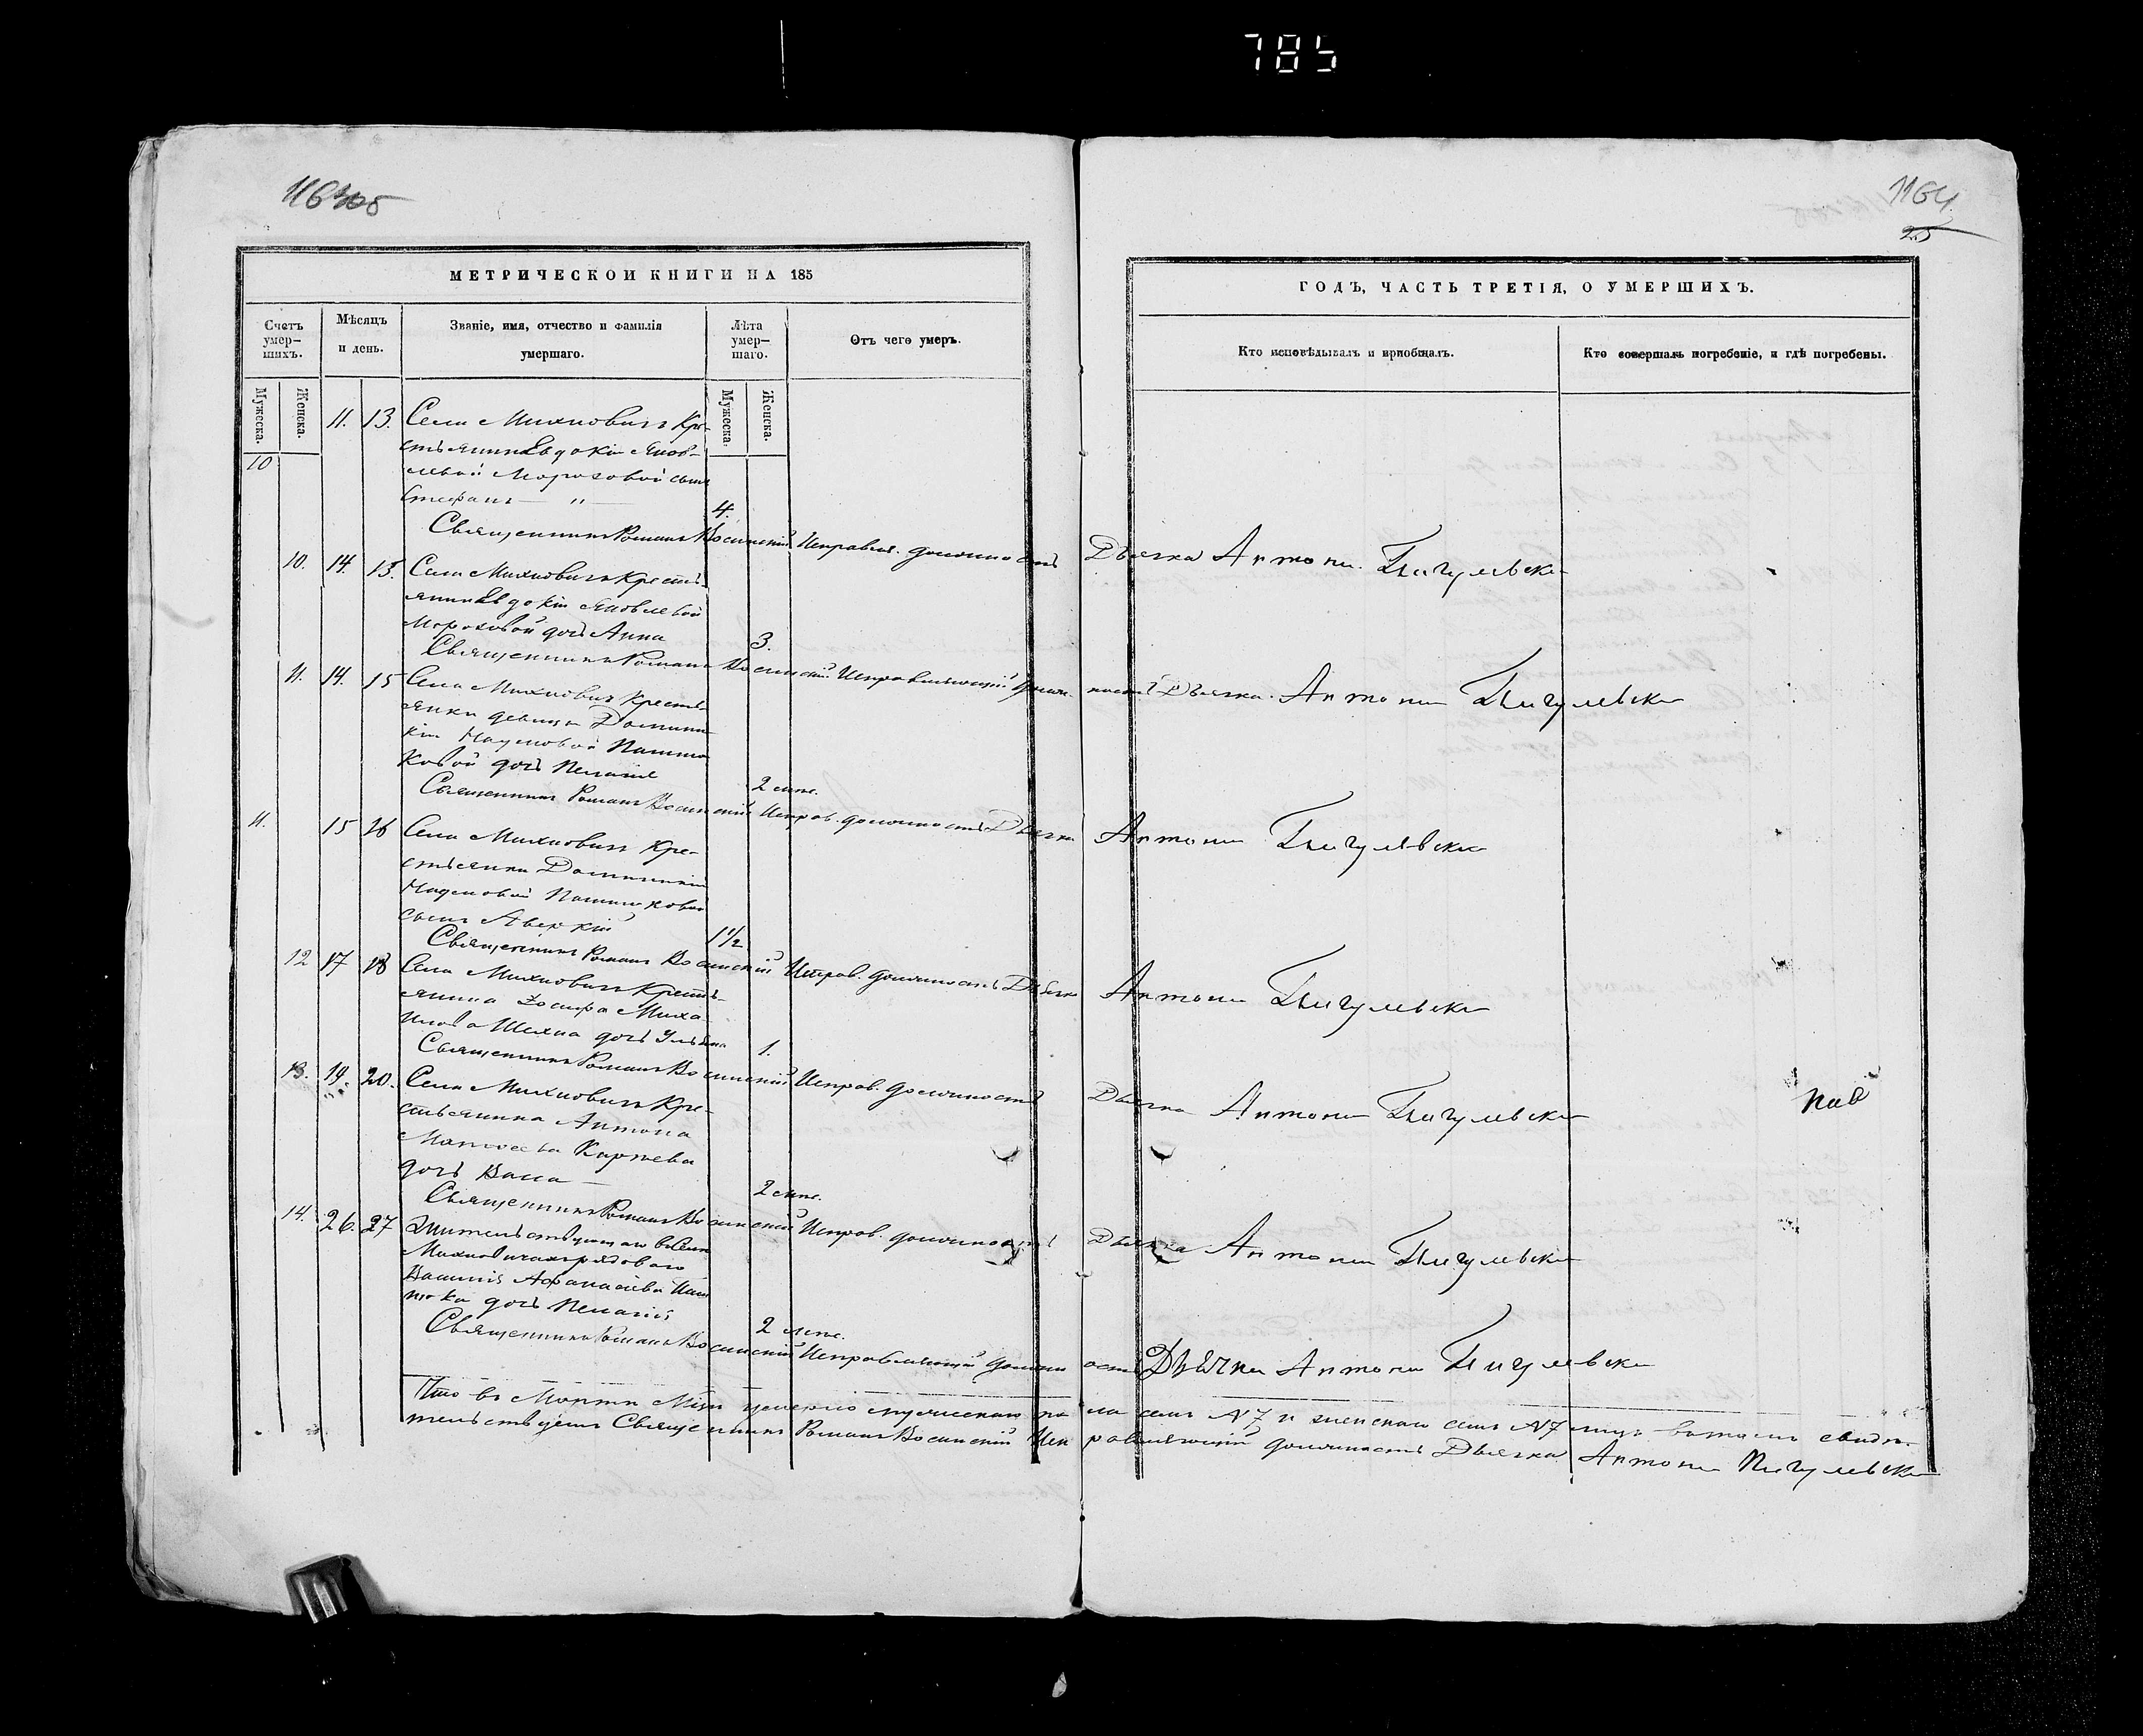 785
1164
25
МЕТРИЧЕСКОЙ КНИГИ НА 185
ГОДЪ, ЧАСТЬ ТРЕТІЯ, О УМЕРШИХЪ.
Счетъ умер-шихъ.
Мужеска.
Женска.
Мѣсяцъ и день.
Званіе, имя, отчество и фамилія умершаго.
Лѣта умер-шаго.
Мужеска.
Женска.
Отъ чего умеръ.
Кто исповѣдывалъ и приобщалъ.
Кто совершалъ погребеніе, и гдѣ погребены.
10
11. 13. Села Михновичъ Кре-
стьянки Евдокіи Яков-
левой Морозовой сынъ
Стефанъ — „ —
4.
Священникъ Романъ Восинскій Исправля. должность Дьячка Антони Пигулевски
10. 14. 15. Села Михновичъ Кресть-
янки Евдокіи Яковлевой
Морозовой дочь Анна
3.
Священникъ Романъ Восинскій Исправляющій должность Дьячка Антони Пигулевски
11. 14. 15 Села Михновичъ Кресть-
янки девицы Домини-
кіи Наумовой
дочь Пелагія
2 мце.
Священникъ Романъ Восинскій Исправ. должность Дьячка Антони Пигулевски
11. 15 16 Села Михновичъ Кре-
стьянки Доминикіи
Наумовой
сынъ Аверкій
1 1/2
Священникъ Романъ Восинскій Исправ. должность Дьячка Антони Пигулевски
12 17 18 Села Михновичъ Кресть-
янина Іосифа Миха-
дочь Ульяна
1.
Священникъ Романъ Восинскій Исправ. должность Дьячка Антони Пигулевски
13. 19. 20. Села Михновичъ Кре-
стьянина Антона
дочь Васса —
2 мце.
Священникъ Романъ Восинскій Исправ. должность Дьячка Антони Пигулевски
14. 26. 27 Жительствующаго в Селе
Михновичахъ рядоваго
Василія Афанасіева
дочь Пелагія
2 мце.
Священникъ Романъ Восинскій Исправляющій должность Дьячка Антони Пигулевски
Что въ Мартѣ умерло мужескаго пола семь №7 и женскаго семь №7 въ томъ свидѣ-
тельствуемъ Священникъ Романъ Восинскій Исправляющій должность Дьячка Антони Пигулевски